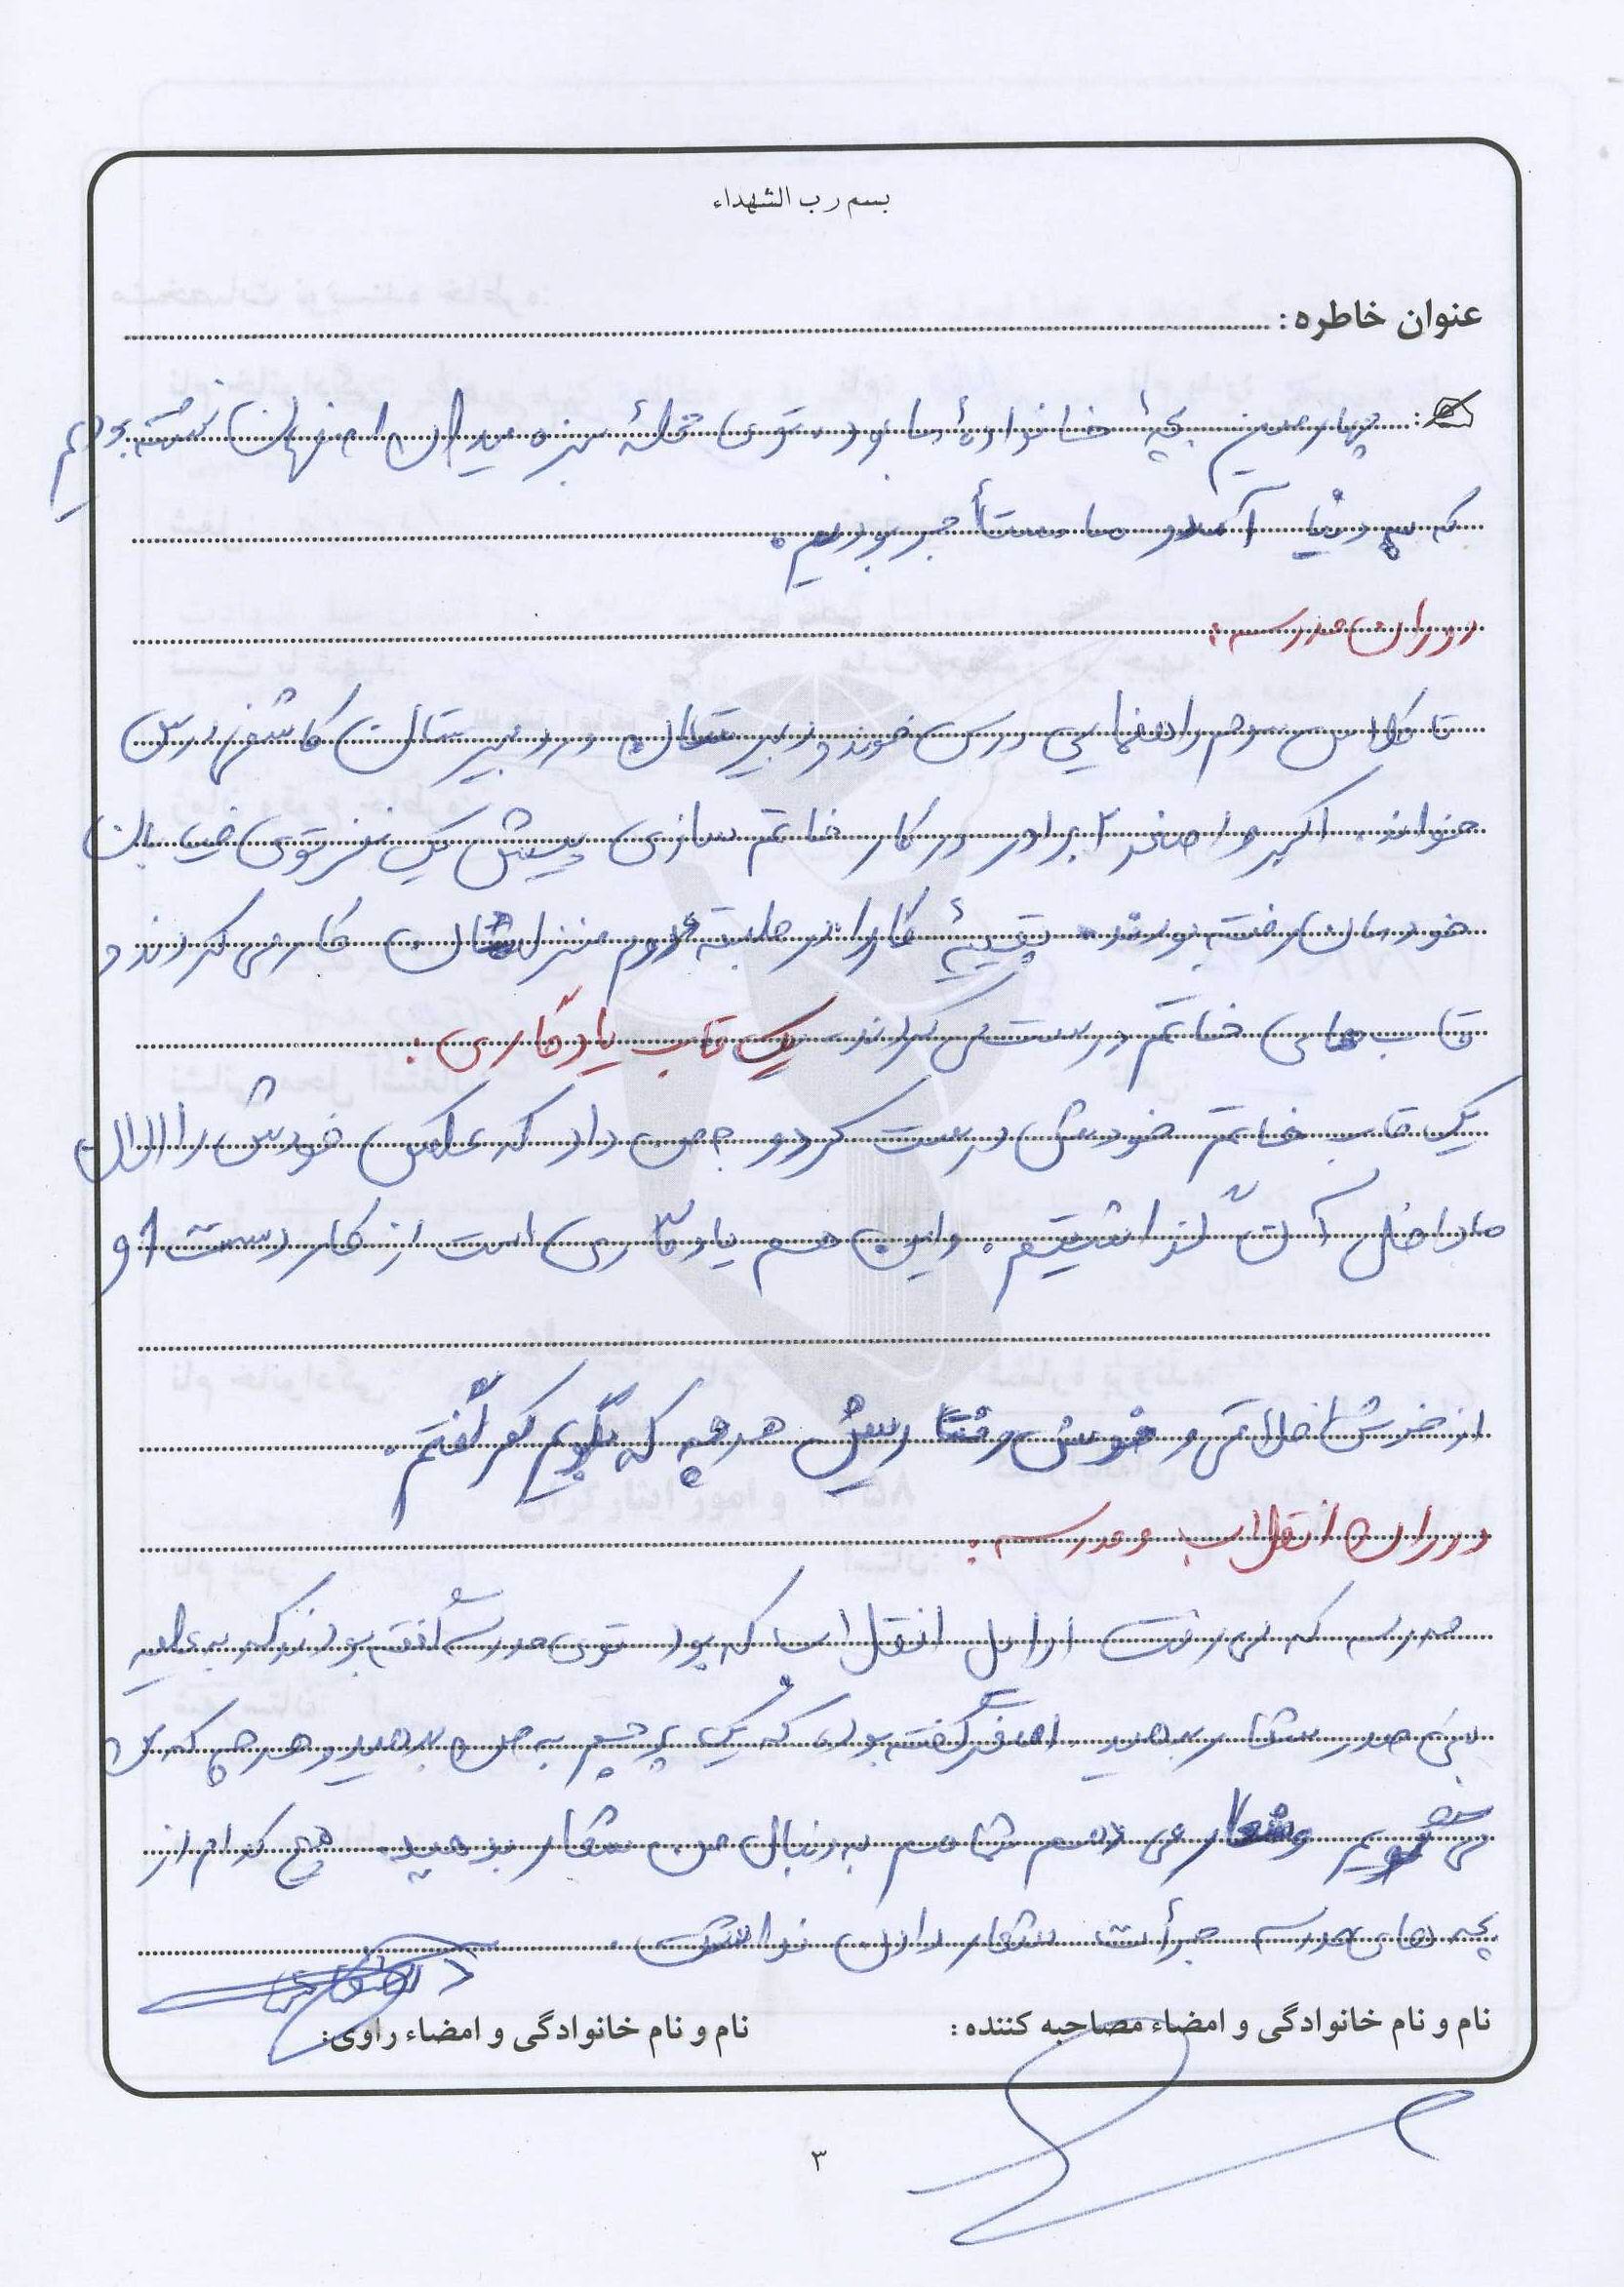 بسم رب الشهداء
عنوان خاطره :
چهارمین بچهٔ خانوادهٔ ما بود. توی محلهٔ سبزه میدان اصفهان نشسته بودیم
که به دنیا آمد و ما مستأجر بودیم.
دوران مدرسه:
تا کلاس سوم راهنمایی درس خوند و دبیرستان در دبیرستان کاشفی درس
خواند. اکبر و اصغر ۲ برادر در کار خاتم سازی پیش یک نفر توی خیابان
خودمان رفته بودند. بقیهٔ کار را در طبقه دوم منزلشان کار می کردند و
قاب های خاتم درست می کردند. یک قاب یادگاری:
یک قاب خاتم خودش درست کرد و به من داد که عکس خودش را الان
ما داخل آن گذاشتیم. و این هم یادگاری است از کار دست او
از خوش اخلاقی و خوش رفتاریش هر چه که بگویم کم گفتم.
دوران انقلاب و مدرسه:
مدرسه که می رفت اوایل انقلاب که بود توی مدرسه گفته بودند که به علیه
بنی صدر شعار بدهید. اصغر گفته بود که یک پرچم به من بدهید و هر چه که من
می گویم و شعار می دهم شما هم به دنبال من شعار بدهید. هیچ کدام از
بچه های مدرسه جرأت شعار دادن نداشت.
نام و نام خانوادگی و امضاء مصاحبه کننده :
نام و نام خانوادگی و امضاء راوی:
۳